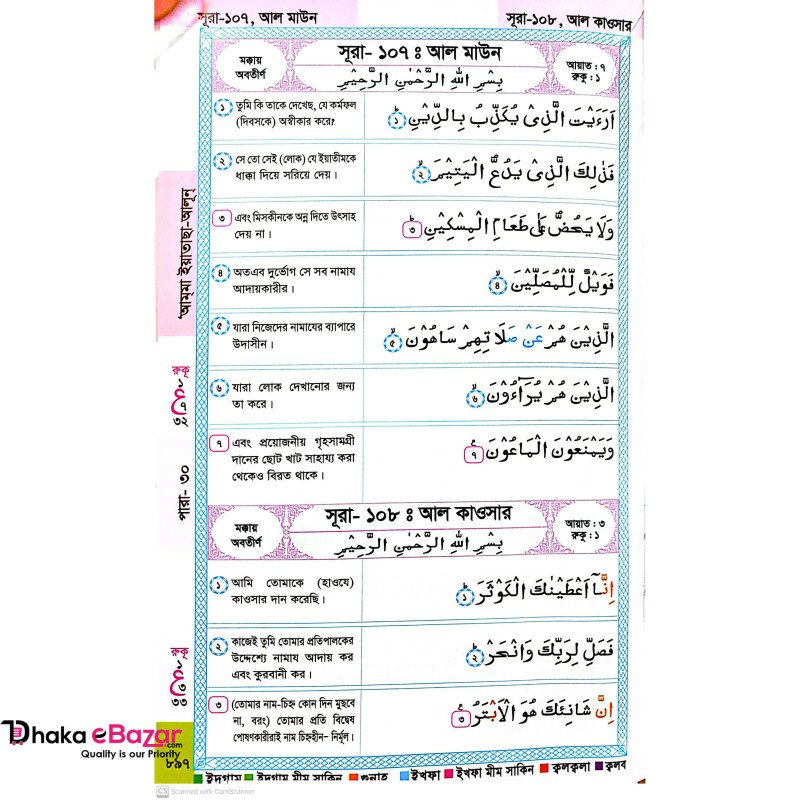 সূরা-১০৭, আল মাউন
সূরা-১০৮, আল কাওসার
মক্কায়
অবতীর্ণ
সূরা- ১০৭ ঃ আল মাউন
بِسْمِ اللّٰهِ الرَّحْمٰنِ الرَّحِيْمِ
আয়াত : ৭
রুকু : ১
১ তুমি কি তাকে দেখেছ, যে কর্মফল
(দিবসকে) অস্বীকার করে?
اَرَءَيْتَ الَّذِىْ يُكَذِّبُ بِالدِّيْنِ ১
২ সে তো সেই (লোক) যে ইয়াতীমকে
ধাক্কা দিয়ে সরিয়ে দেয়।
فَذٰلِكَ الَّذِىْ يَدُعُّ الْيَتِيْمَ ২
৩ এবং মিসকীনকে অন্ন দিতে উৎসাহ
দেয় না।
وَلَا يَحُضُّ عَلٰى طَعَامِ الْمِسْكِيْنِ ৩
৪ অতএব দুর্ভোগ সে সব নামায
আদায়কারীর।
فَوَيْلٌ لِّلْمُصَلِّيْنَ ৪
৫ যারা নিজেদের নামাযের ব্যাপারে
উদাসীন।
الَّذِيْنَ هُمْ عَنْ صَلَاتِهِمْ سَاهُوْنَ ৫
৬ যারা লোক দেখানোর জন্য
তা করে।
الَّذِيْنَ هُمْ يُرَآءُوْنَ ৬
৭ এবং প্রয়োজনীয় গৃহসামগ্রী
দানের ছোট খাট সাহায্য করা
থেকেও বিরত থাকে।
وَيَمْنَعُوْنَ الْمَاعُوْنَ ৭
মক্কায়
অবতীর্ণ
সূরা- ১০৮ ঃ আল কাওসার
بِسْمِ اللّٰهِ الرَّحْمٰنِ الرَّحِيْمِ
আয়াত : ৩
রুকু : ১
১ আমি তোমাকে (হাওযে)
কাওসার দান করেছি।
اِنَّآ اَعْطَيْنٰكَ الْكَوْثَرَ ১
২ কাজেই তুমি তোমার প্রতিপালকের
উদ্দেশ্যে নামায আদায় কর
এবং কুরবানী কর।
فَصَلِّ لِرَبِّكَ وَانْحَرْ ২
৩ (তোমার নাম-চিহ্ন কোন দিন মুছবে
না, বরং) তোমার প্রতি বিদ্বেষ
পোষণকারীরাই নাম চিহ্নহীন- নির্মূল।
اِنَّ شَانِئَكَ هُوَ الْاَبْتَرُ ৩
'আম্মা ইয়াতাছা-আলূন্
রুকূ
পারা- ৩০
রুকূ
৮৯৭
Dhaka eBazar.com
Quality is our Priority
ইদগাম ইদগাম মীম সাকিন গুন্নাহ ইখফা ইখফা মীম সাকিন ক্বলক্বলা ক্বলব
CS Scanned with CamScanner